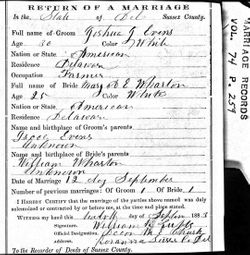 RETURN OF A MARRIAGE
In the State of Del Sussex County.
Full name of Groom Joshua J Evans
Age 30 Color White
Nation or State American
Residence Delaware
Occupation Farmer
Full name of Bride Mary E Wharton
Age 25 Color White
Nation or State American
Residence Delaware
Name and birthplace of Groom's parents
Isaac Evans
Unknown
Name and birthplace of Bride's parents
William Wharton
Unknown
Date of Marriage 12 day September
Number of previous marriages: Of Groom 1 Of Bride 1
I HEREBY CERTIFY that the marriage of the parties above named was duly
solemnized or contracted by or before me, at the time and place stated.
WITNESS my hand this day of 188
Signature. William
Official position,
Address, Sussex Co Del
To the Recorder of Deeds of Sussex County.
MARRIAGE RECORDS
VOL. 74 P. 259